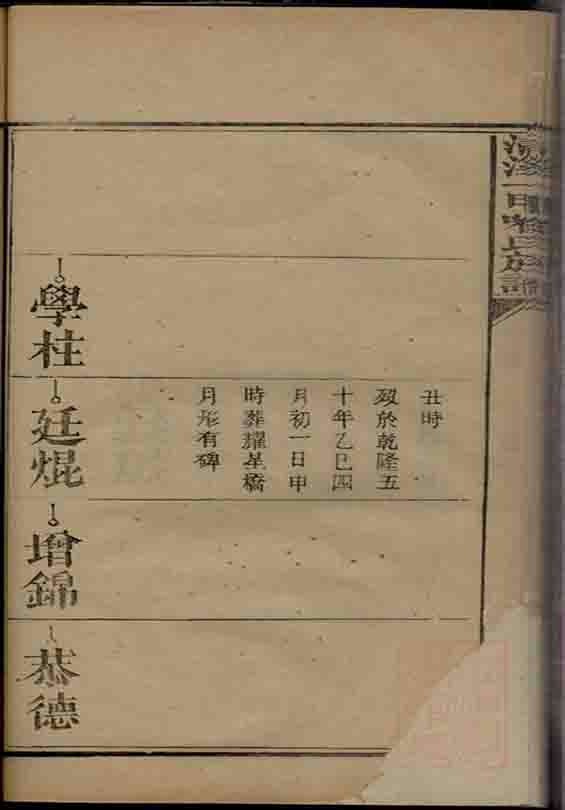 氏族譜
丑時
歿於乾隆五
十年乙巳四
月初一日申
時葬耀星橋
月形有碑
學柱
廷焜
增錦
恭德